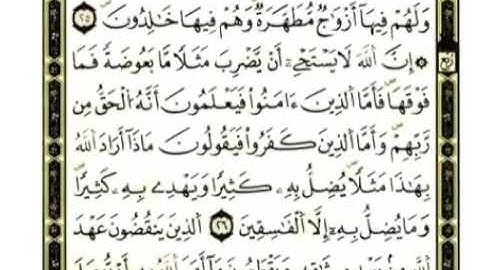 وَلَهُمْ فِيهَآ أَزْوَٰجٌ مُّطَهَّرَةٌ وَهُمْ فِيهَا خَٰلِدُونَ ٢٥
ربع
إِنَّ ٱللَّهَ لَا يَسْتَحْىِۦٓ أَن يَضْرِبَ مَثَلًا مَّا بَعُوضَةً فَمَا
فَوْقَهَا فَأَمَّا ٱلَّذِينَ ءَامَنُوا۟ فَيَعْلَمُونَ أَنَّهُ ٱلْحَقُّ مِن
رَّبِّهِمْ وَأَمَّا ٱلَّذِينَ كَفَرُوا۟ فَيَقُولُونَ مَاذَآ أَرَادَ ٱللَّهُ
بِهَٰذَا مَثَلًا يُضِلُّ بِهِۦ كَثِيرًا وَيَهْدِى بِهِۦ كَثِيرًا
وَمَا يُضِلُّ بِهِۦٓ إِلَّا ٱلْفَٰسِقِينَ ٢٦ ٱلَّذِينَ يَنقُضُونَ عَهْدَ